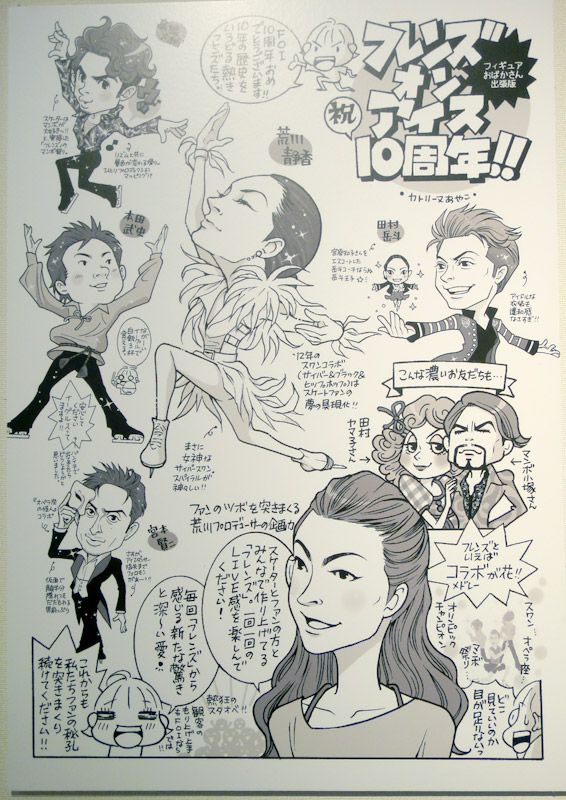 フレンズ
オン
アイス
10周年!!
祝
フィギュア
おばかさん
出張版
・カトリーヌあやこ・
FOI
10周年おめ
でとうございます!!
10年の歴史を
いろどる熱き
フレンズたち。
荒川
静香
本田
武史
田村
岳斗
アイドルな
衣装も
違和感
なさすぎ!!
こんな濃いお友だちも…
田村
ヤマ子さん
マンボ小塚さん
'12年の
スワンコラボ
(サイバー&ブラック&
ヒップホップ)は
スケートファンの
夢の具現化!!
まさに
女神な
サイバースワン。
スパイラルが
神々しい!!
宮本
賢二
ファンのツボを突きまくる
荒川プロデューサーの企画力
スケーターとファンの方と
みんなで作り上げてる
"フレンズ"。一回一回の
LIVE感を楽しんで
ください!
毎回"フレンズ"から
感じる新たな驚き
と深〜い愛…
フレンズと
いえば
コラボが花!!
メドレー
スワン…
オペラ座…
オリンピック
チャンピオン
マンボ
祭り…
熱狂の
スタオベ!!
観客の
もり上げ上手
もFOIなら
では!!
これからも
私たちファンの秘孔
を突きまくり
続けてください!!
どこ
見ていいのか
目が足りないっ